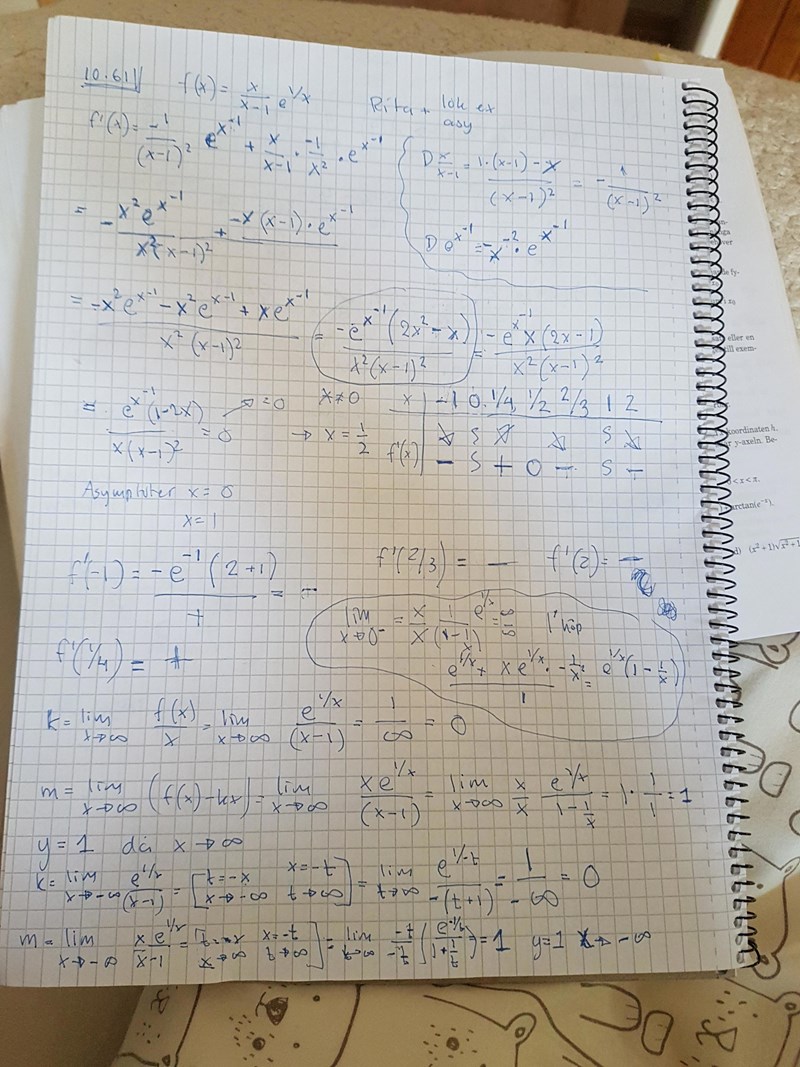 10.61)
f(x) = x/(x-1) e^(1/x)
Rita + lok ex
asy
f'(x) = -1/(x-1)^2 e^(x^-1) + x/(x-1) · -1/x^2 · e^(x^-1)
D x/(x-1) = (1·(x-1) - x)/(x-1)^2 = - 1/(x-1)^2
D e^(x^-1) = -x^-2 · e^(x^-1)
= - x^2 e^(x^-1)/(x^2(x-1)^2) + -x(x-1)·e^(x^-1)
= (-x^2 e^(x^-1) - x^2 e^(x^-1) + x e^(x^-1))/(x^2(x-1)^2) = -e^(x^-1)(2x^2 - x)/(x^2(x-1)^2) = -e^(x^-1) x(2x-1)/(x^2(x-1)^2)
= e^(x^-1)(1-2x)/(x(x-1)^2) = 0 x≠0 → x = 1/2
x | -1 0 1/4 1/2 2/3 1 2
f'(x) | - S + 0 - S -
Asymptoter x = 0
x = 1
f'(-1) = -e^-1(2+1)/+ = -
f'(2/3) = - f'(2) = -
f'(1/4) = +
lim x→0^- = x/x 1/(1-1/x) e^(1/x) l'hôp
(e^(1/x) + x e^(1/x) · -1/x^2)/1 = e^(1/x)(1 - 1/x)
k = lim x→∞ f(x)/x = lim x→∞ e^(1/x)/(x-1) = 1/∞ = 0
m = lim x→∞ (f(x)-kx) = lim x→∞ x e^(1/x)/(x-1) = lim x→∞ x/x e^(1/x)/(1-1/x) = 1 · 1/1 = 1
y = 1 då x → ∞
k = lim x→-∞ e^(1/x)/(x-1) = [t=-x x=-t x→-∞ t→∞] = lim t→∞ e^(1/-t)/-(t+1) = 1/-∞ = 0
m = lim x→-∞ x e^(1/x)/(x-1) = [t=-x x=-t x→∞ t→∞] = lim t→∞ -t/-t (e^(-1/t)/(1+1/t)) = 1 y=1 x→-∞